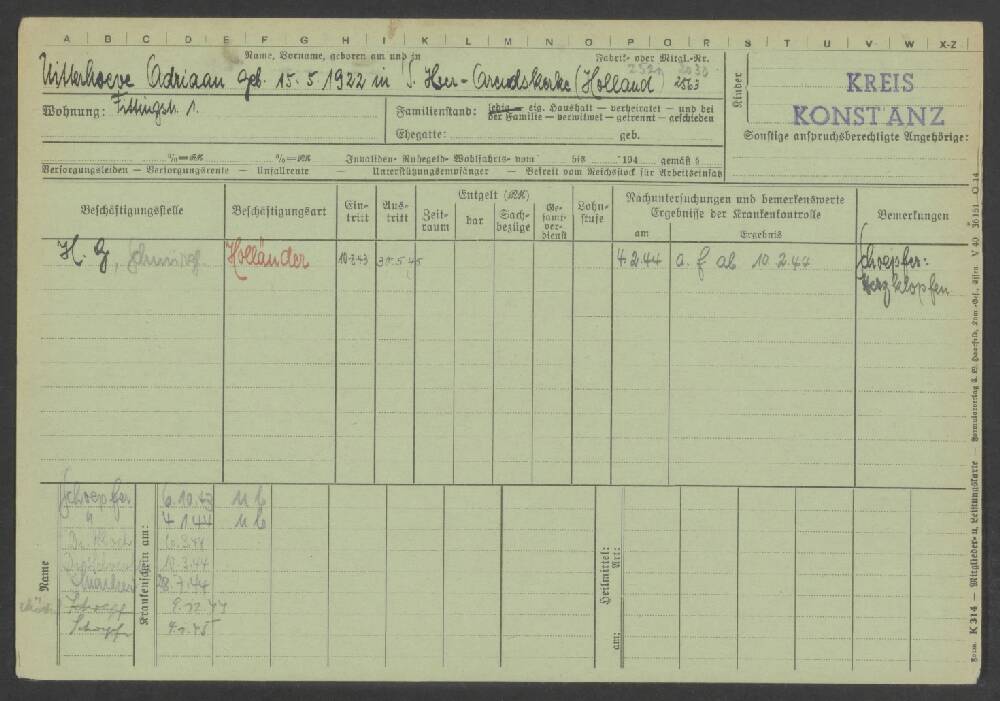 A B C D E F G H I K L M N O P Q R S T U V W X-Z
Name, Vorname, geboren am und in
Fabrik- oder Mitgl.-Nr.
Uitterhoeve Adriaan geb. 15.5.1922 in (Holland) 2563
Wohnung: Fittingstr. 1.
Familienstand: ledig — eig. Haushalt — verheiratet — und bei
der Familie — verwitwet — getrennt — geschieden
Ehegatte: geb.
Kinder
KREIS
KONSTANZ
Sonstige anspruchsberechtigte Angehörige:
%=RM %=RM Invaliden- Ruhegeld- Wohlfahrts- vom bis 194 gemäß §
Versorgungsleiden — Versorgungsrente — Unfallrente — Unterstützungsempfänger — Befreit vom Reichsstock für Arbeitseinsatz
Beschäftigungsstelle
Beschäftigungsart
Ein-
tritt
Aus-
tritt
Entgelt (RM)
Zeit-
raum
bar
Sach-
bezüge
Ge-
samt-
ver-
dienst
Lohn-
stufe
Nachuntersuchungen und bemerkenswerte
Ergebnisse der Krankenkontrolle
am Ergebnis
Bemerkungen
H. G, Holländer 10.3.43 31.5.45 4.2.44 a. f ab 10.2.44 Schoepfer:
Herzklopfen
Name
Krankenschein am:
Heilmittel:
Art:
am:
Schoepfer 6.10.43
" 4.1.44
Dr. 10.3.44
10.3.44
28.7.44
Schoepf 9.12.44
Schoepfe 4.1.45
Form. K 314 — Mitglieder- u. Leistungskarte — Formularverlag